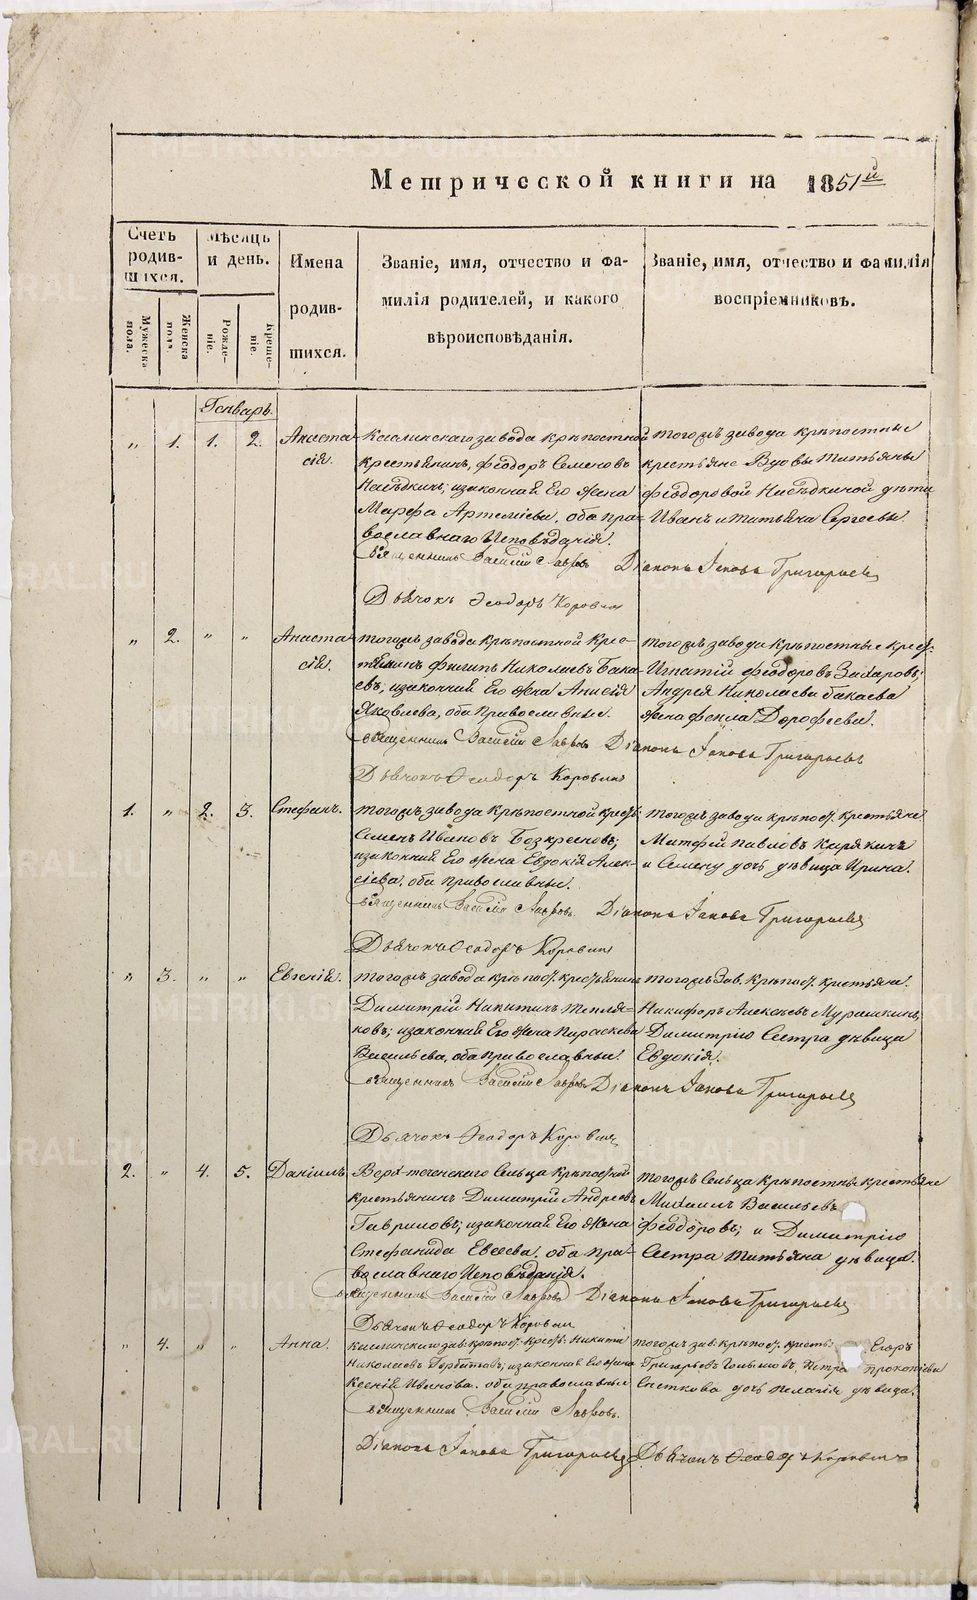 Метрической книги на 1851й
Счетъ родившихся.
Мѣсяцъ и день.
Имена родившихся.
Званіе, имя, отчество и фамилія родителей, и какого вѣроисповѣданія.
Званіе, имя, отчество и фамилія воспріемниковъ.
Мужеска пола.
Женска пола
Рожденіе.
Крещеніе.
Генварь.
" 1. 1. 2. Анастасія.
Каслинскаго завода крѣпостной
крестьянинъ, Феодоръ Семеновъ
Насѣдкинъ; и законная Его жена
Марфа Артеміева, оба православнаго Исповѣданія.
тогожъ завода крѣпостные
крестьяне Вдовы Татьяны
Феодоровой Насѣдкиной дѣти
Иванъ и Татьяна Сергеевы.
Священникъ Василій Лавровъ Діаконъ Іаковъ Григорьевъ
Дьячокъ Ѳеодоръ Коровинъ
" 2. " " Анастасія.
тогожъ завода крѣпостной Крестьянинъ Филипъ Николаевъ Бакаевъ; и законная Его жена Анисія
Яковлева, оба Православные.
тогожъ завода Крѣпостные крест:
Игнатій Феодоровъ Захаровъ;
Андрея Николаева Бакаева
жена Фекла Дорофеева.
Священникъ Василій Лавровъ Діаконъ Іаковъ Григорьевъ
Дьячокъ Ѳеодоръ Коровинъ
1. " 2. 3. Стефанъ.
тогожъ завода Крѣпостной крест:
Семенъ Ивановъ
и законная Его жена Евдокія Алексіева, оба православные.
тогожъ завода крѣпост. крестьяне
Матфей Павловъ Карякинъ
и Семену дочь дѣвица Ирина.
Священникъ Василій Лавровъ Діаконъ Іаковъ Григорьевъ
Дьячокъ Ѳеодоръ Коровинъ
" 3. " " Евгенія.
тогожъ завода крѣпост. крестьянинъ
Димитрій Никитинъ Тепляковъ; и законная Его жена Параскева
Васильева, оба православные.
тогожъ Зав. Крѣпост. крестьяне.
Никифоръ Алексѣевъ Мурашкинъ;
Димитрію Сестра дѣвица
Евдокія.
Священникъ Василій Лавровъ Діаконъ Іаковъ Григорьевъ
Дьячокъ Ѳеодоръ Коровинъ
2. " 4. 5. Даніилъ.
Верх-теченскаго Сельца Крѣпостной
крестьянинъ Димитрій Андреевъ
Гавриловъ; и законная Его жена
Стефанида Евсеева. оба православнаго Исповѣданія.
тогожъ Сельца Крѣпостные крестьяне
Михаилъ Васильевъ
Феодоровъ; и Димитрію
Сестра Татьяна дѣвица.
Священникъ Василій Лавровъ Діаконъ Іаковъ Григорьевъ
Дьячокъ Ѳеодоръ Коровинъ
" 4. " " Анна.
Каслинскаго зав: крѣпост. Крест: Никита
Николаевъ Горбатовъ; и законная Его жена
Ксенія Иванова. оба православные
тогожъ зав: крѣпост. кресть: Егоръ
Григорьевъ Голышовъ, Петра Прокопіева
дочь Пелагія дѣвица.
Священникъ Василій Лавровъ.
Діаконъ Іаковъ Григорьевъ Дьячокъ Ѳеодоръ Коровинъ